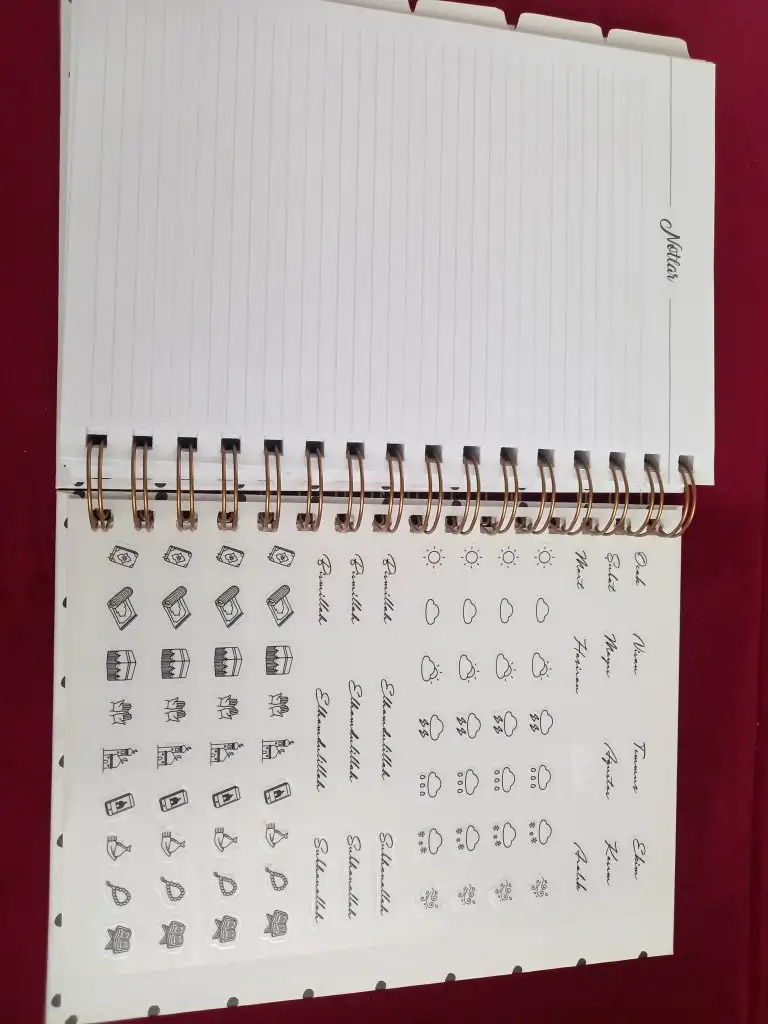 Notlar
Ocak Nisan Temmuz Ekim
Şubat Mayıs Ağustos Kasım
Mart Haziran Aralık
Bismillah Elhamdulillah Subhanallah
Bismillah Elhamdulillah Subhanallah
Bismillah Elhamdulillah Subhanallah